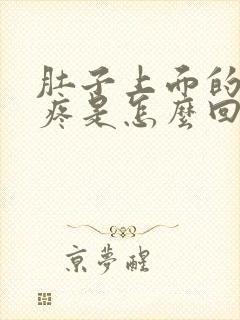 肚子上面的
疼是怎麼回
京夢醒